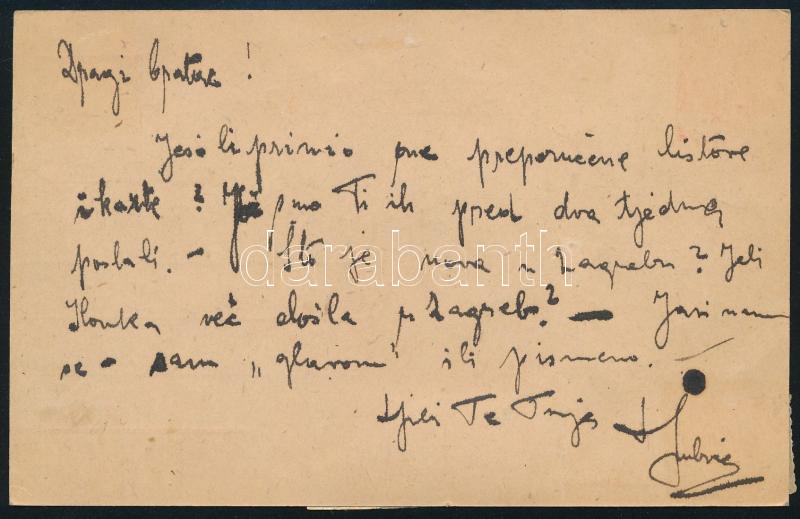 Dragi bratac!
Jesi li primio one preporučene listove
i karte? Mi smo Ti ih pred dva tjedna
poslali. – Što je nova u Zagrebu? Jeli
Ilonka več došla u Zagreb? – Javi nam
se – sam „glavom" ili pismeno. –
Te Tvoj
darabanth